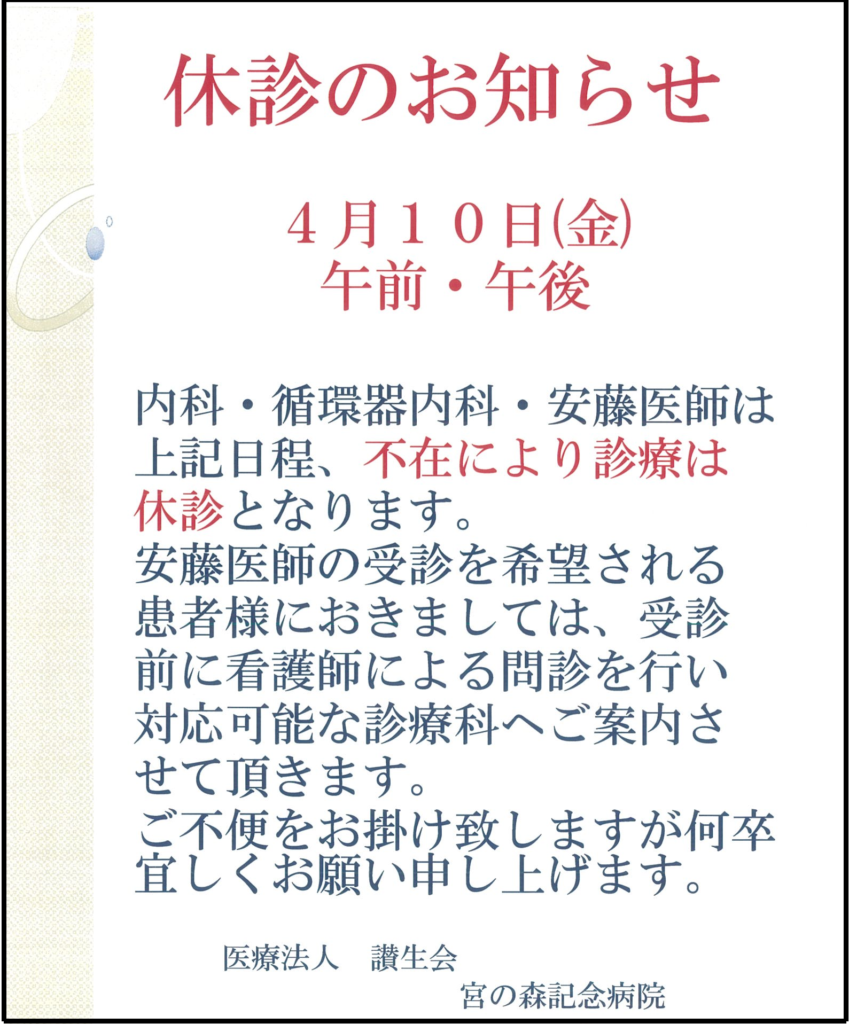 休診のお知らせ
４月１０日(金)
午前・午後
内科・循環器内科・安藤医師は
上記日程、不在により診療は
休診となります。
安藤医師の受診を希望される
患者様におきましては、受診
前に看護師による問診を行い
対応可能な診療科へご案内さ
せて頂きます。
ご不便をお掛け致しますが何卒
宜しくお願い申し上げます。
医療法人　讃生会
宮の森記念病院